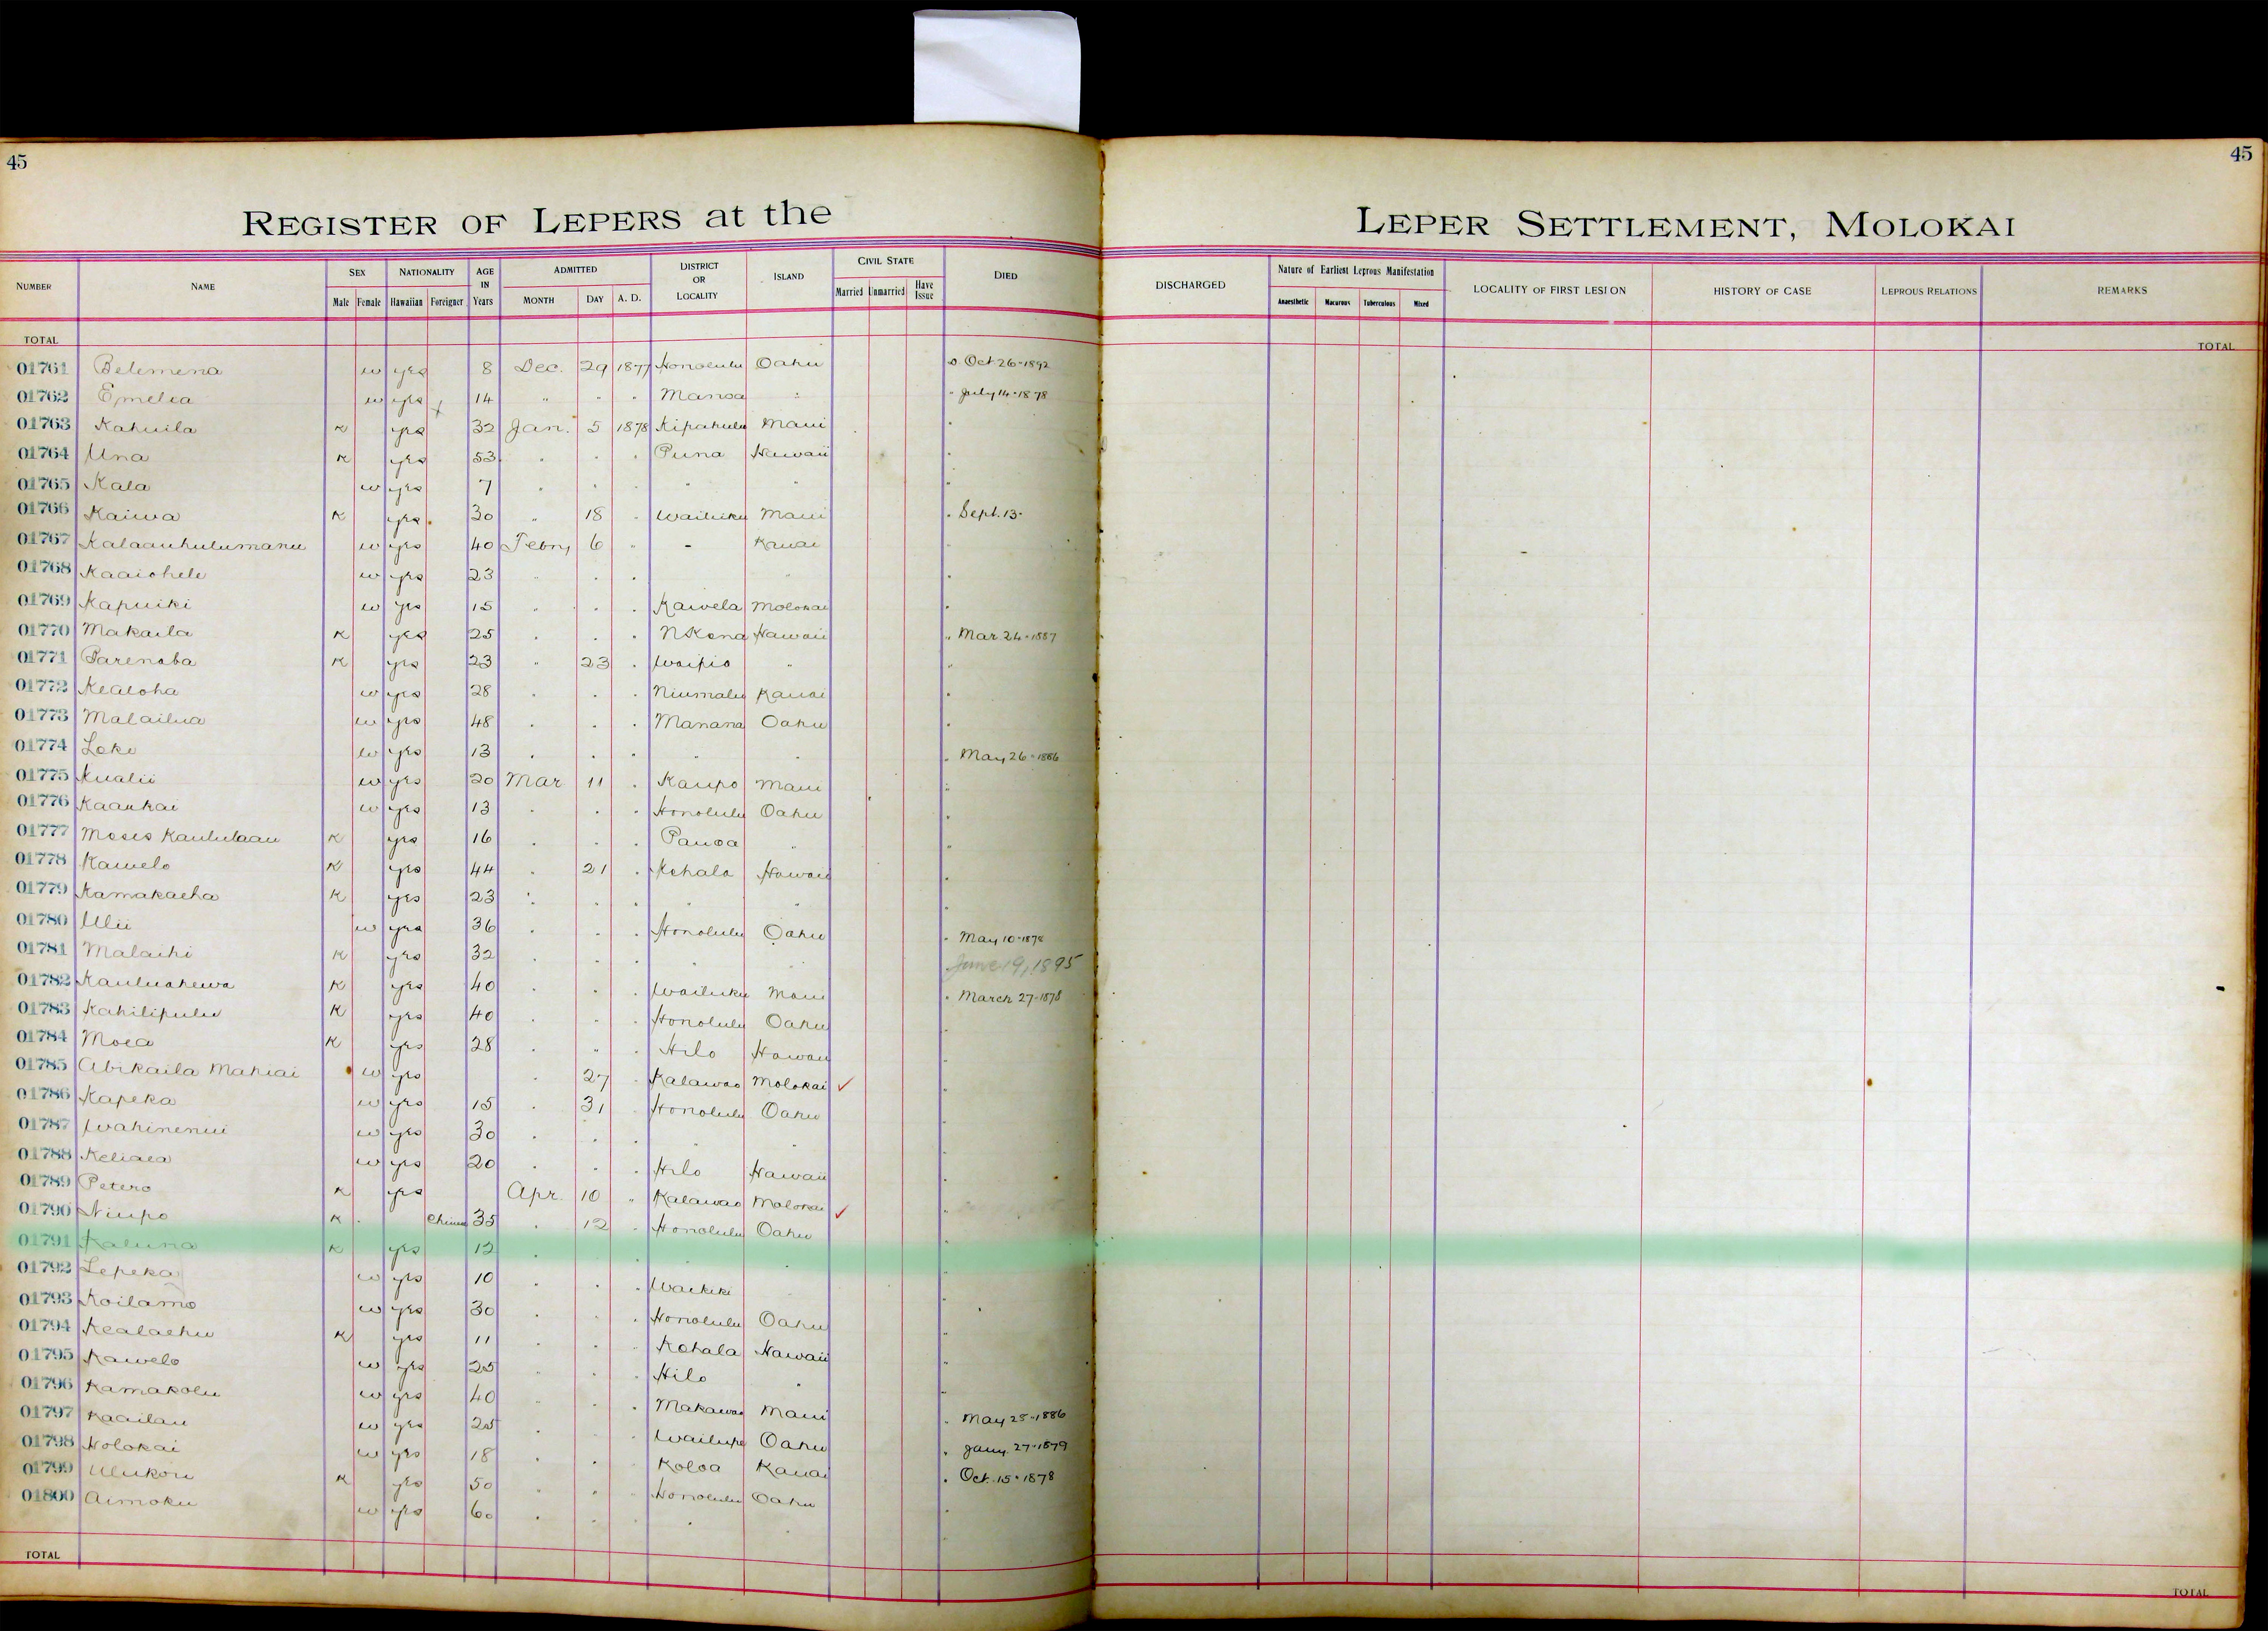 45
45
REGISTER OF LEPERS at the LEPER SETTLEMENT, MOLOKAI
NUMBER NAME SEX Male Female NATIONALITY Hawaiian Foreigner AGE IN Years ADMITTED MONTH DAY A. D. DISTRICT OR LOCALITY ISLAND CIVIL STATE Married Unmarried Have Issue DIED DISCHARGED Nature of Earliest Leprous Manifestation Anaesthetic Macurous Tuberculous Mixed LOCALITY OF FIRST LESION HISTORY OF CASE LEPROUS RELATIONS REMARKS
TOTAL TOTAL
01761 Belemena w yes 8 Dec. 29 1877 Honolulu Oahu Oct 26-1892
01762 Emelia w yes 14 " " " Manoa " " July 14-1878
01763 Kahuila K yes 32 Jan. 5 1878 Kipahulu Maui "
01764 Una K yes 53 " " " Puna Hawaii "
01765 Kala w yes 7 " " " " " "
01766 Kaiwa K yes 30 " 18 " Wailuku Maui " Sept. 13-
01767 Kalaauhulumanu w yes 40 Febry 6 " - Kauai "
01768 Kaaiohele w yes 23 " " " " "
01769 Kapuiki w yes 15 " " " Kawela Molokai "
01770 Makaila K yes 25 " " " N Kona Hawaii " Mar 24-1887
01771 Parenaba K yes 23 " 23 " Waipio " "
01772 Kealoha w yes 28 " " " Niumalu Kauai "
01773 Malailua w yes 48 " " " Manana Oahu "
01774 Loke w yes 13 " " " " " " May 26-1886
01775 Kualii w yes 20 Mar 11 " Kaupo Maui "
01776 Kaaukai w yes 13 " " " Honolulu Oahu "
01777 Moses Kaululaau K yes 16 " " " Pauoa " "
01778 Kawelo K yes 44 " 21 " Kohala Hawaii "
01779 Kamakaeha K yes 23 " " " " " "
01780 Ulii w yes 36 " " " Honolulu Oahu " May 10-1878
01781 Malaihi K yes 32 " " " " " June 19, 1895
01782 Kauluahewa K yes 40 " " " Wailuku Maui " March 27-1878
01783 Kahilipulu K yes 40 " " " Honolulu Oahu "
01784 Moea K yes 28 " " " Hilo Hawaii "
01785 Abikaila Mahiai w yes " 27 " Kalawao Molokai ✓ "
01786 Kapeka w yes 15 " 31 " Honolulu Oahu "
01787 Wahinenui w yes 30 " " " " " "
01788 Keliaea w yes 20 " " " Hilo Hawaii "
01789 Petero K yes Apr. 10 " Kalawao Molokai ✓ "
01790 Niupo K Chinese 35 " 12 " Honolulu Oahu "
01791 Kaluna K yes 12 " " " " " "
01792 Lepeka w yes 10 " " " Waikiki "
01793 Koilamo w yes 30 " " " Honolulu Oahu "
01794 Kealaehu K yes 11 " " " Kohala Hawaii "
01795 Kawelo w yes 25 " " " Hilo " "
01796 Kamakolu w yes 40 " " " Makawao Maui "
01797 Kaailau w yes 25 " " " Wailupe Oahu " May 25-1886
01798 Holokai w yes 18 " " " Koloa Kauai " Jany. 27-1879
01799 Ulukou K yes 50 " " " Honolulu Oahu " Oct. 15-1878
01800 Aimoku w yes 60 " " " " " "
TOTAL TOTAL